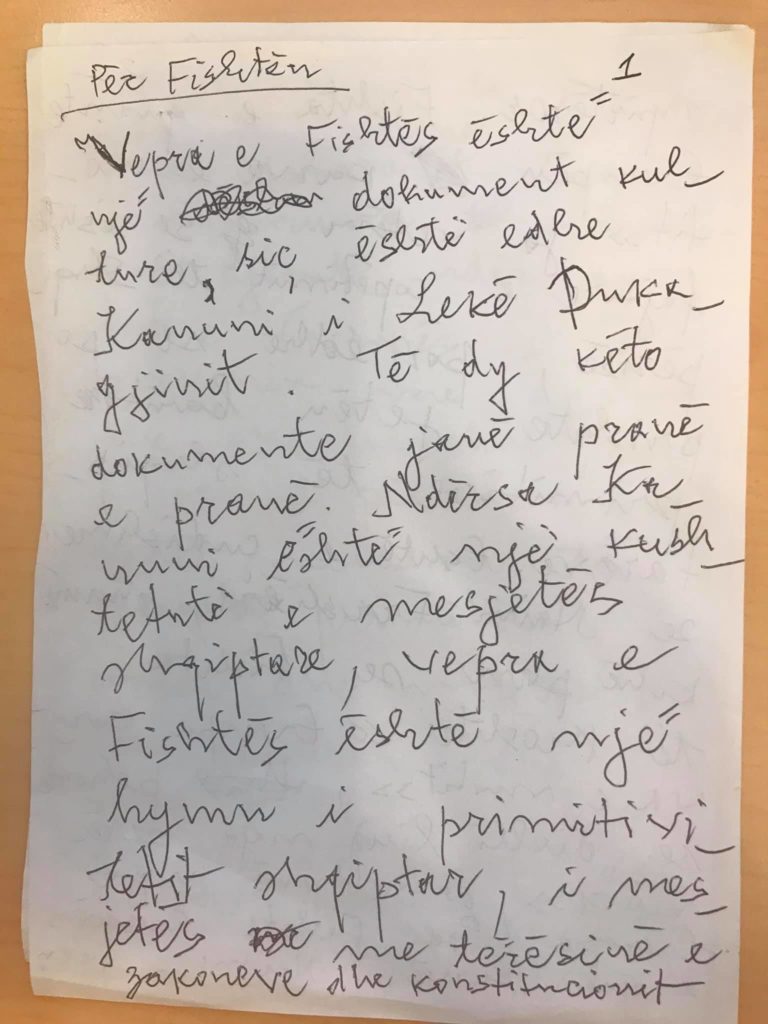 Për Fishtën
1
"Vepra e Fishtës është
një dokument kul-
ture, siç është edhe
Kanuni i Lekë Duka-
gjinit. Të dy këto
dokumente janë pranë
e pranë. Ndërsa Ka-
nuni është një kush-
tetutë e mesjetës
shqiptare, vepra e
Fishtës është një
hymn i primitivi-
tetit shqiptar, i mes-
jetës me tërësinë e
zakoneve dhe konstitucionit